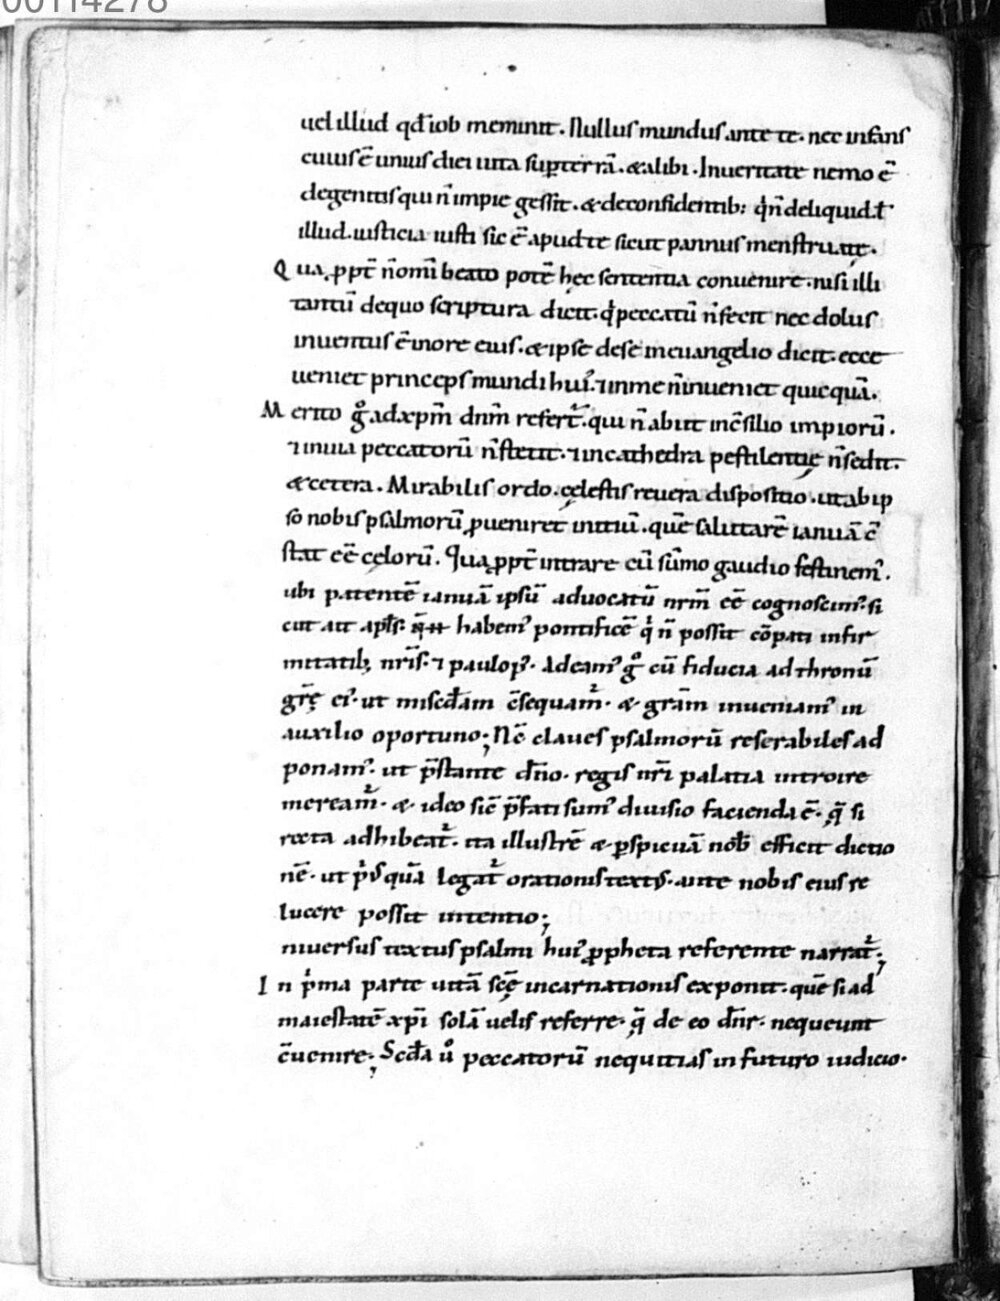 00114278
uel illud qđ iob meminit. Nullus mundus ante te. nec infans
cuius ē unius diei uita sup terrā. &alibi. Inueritate nemo ē
degentiũ qui n̄ impie gessit. &deconfidentib; q̄ n̄ deliquid. ł
illud. iusticia iusti sic ē apud te sicut pannus menstruatę.
Qua ppt̄ n̄ omī beato potē hęc sententia conuenire. nisi illi
tantū dequo scriptura dicit. q̇ peccatū n̄ fecit nec dolus
inuentus ē inore eius. &ipse dese ineuangelio dicit. ecce
ueniet princeps mundi hui᾽. ⁊inme n̄ inueniet quicquā.
Merito g̊ adxp̄m dn̄m refert᷑. qui n̄ abiit inc̄silio impiorū.
⁊inuia peccatorū n̄ stetit. ⁊incathedra pestilentię n̄ sedit.
&cetera. Mirabilis ordo. cęlestis reuera dispositio. ut abip
so nobis psalmorū ꝓueniret initiū. quē salutarē ianuā ē
stat eē cęlorū. Qua ppt̄ intrare cū sūmo gaudio festinem᾽.
ubi patentē ianuā ipsū aduocatū nr̄m eē cognoscim᾽. si
cut ait apl̄s. habem᾽ pontificē q̇ n̄ possit cōpati infir
mitatib; nr̄is. ⁊ paulop᾽. Adeam᾽ g̊ cū fiducia ad thronū
gr̄ę ei᾽. ut misc̄đam c̄sequam᷑. & gr̄am inueniam᾽ in
auxilio oportuno; Nc̄ claues psalmorū reserabiles ad
ponam᾽. ut p̄stante dn̄o. regis nr̄i palatia introire
meream᷑. & ideo sic̄ p̄fati sum᾽ diuisio facienda ē. q̨̄ si
recta adhibeat᷑. ita illustrē & ꝑspicuā nob̄ efficit dictio
nē. ut ṗus quā legat᷑ orationis textus. ante nobis eius re
lucere possit intentio;
niuersus textus psalmi hui᾽ ꝓpheta referente narrat᷑;
In ṗma parte uitā scę̄ incarnationis exponit. quē si ad
maiestatē xp̄i solā uelis referre. q̨̄ de eo dn̄r. nequeunt
c̄uenire; Sc̄đa ů peccatorū nequitias in futuro iudicio.